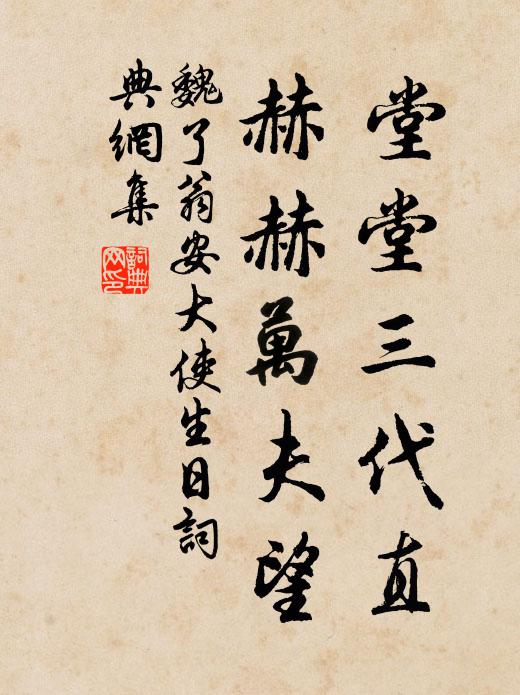 堂堂三代直
赫赫萬夫望
魏了翁安大使生日詞
典網集
詞典網印